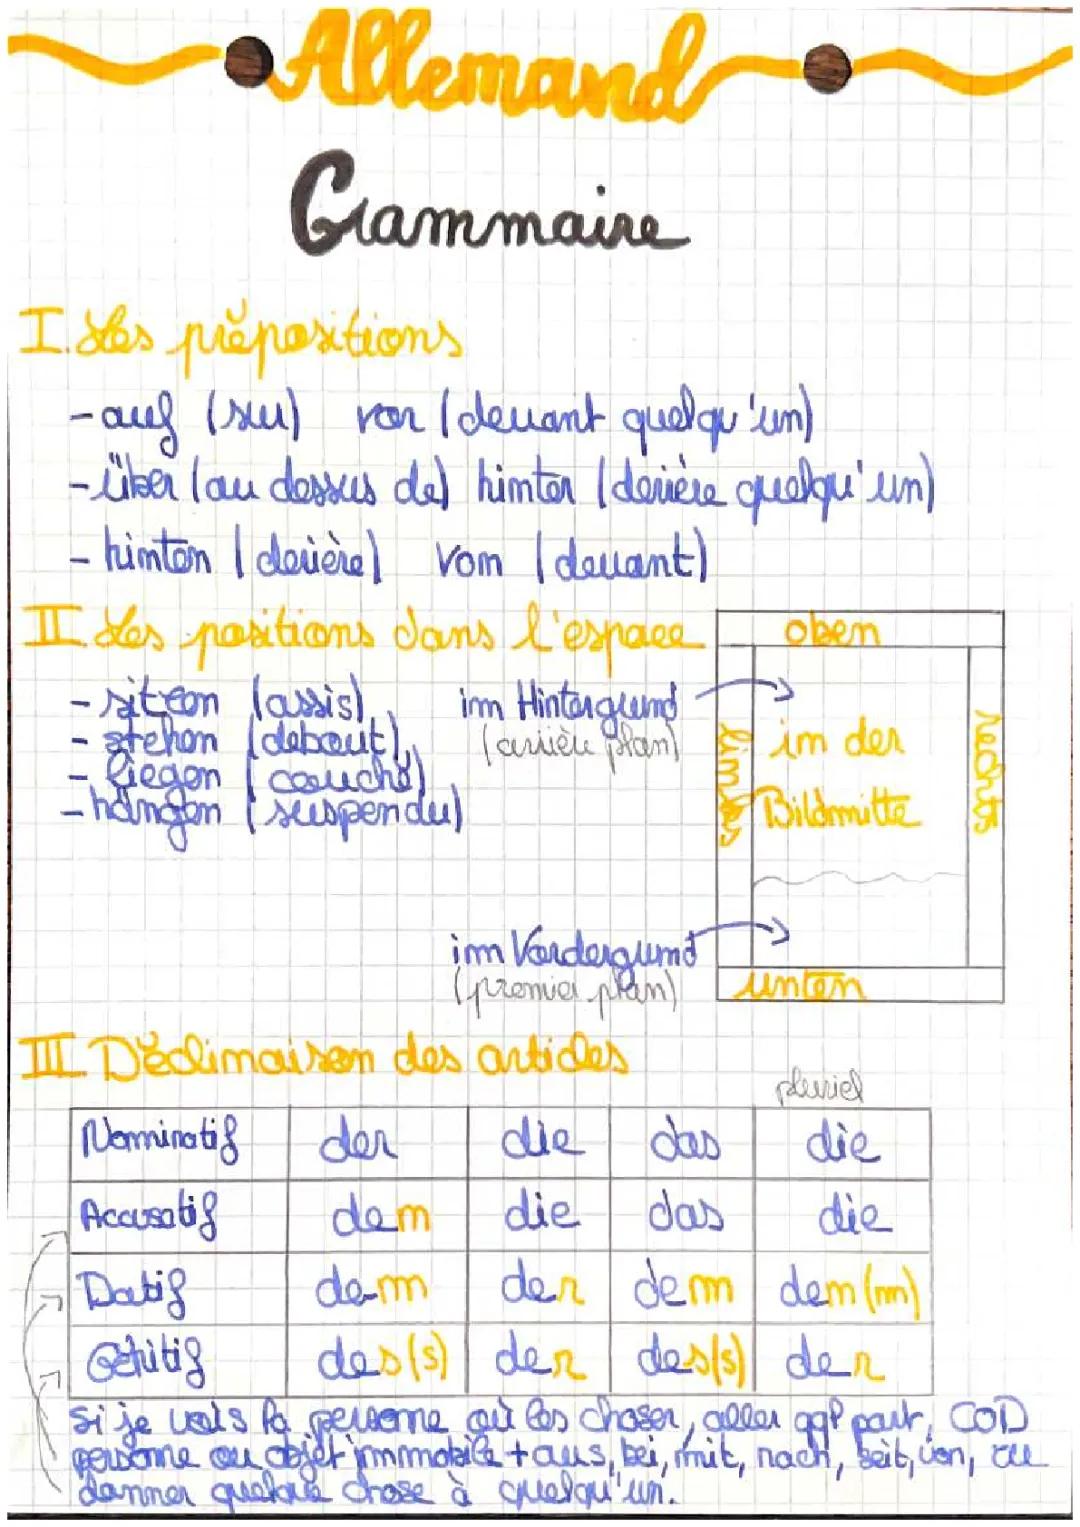 Allemand
Grammaire
I. Les prépositions
- auf (sur) vor (devant quelqu'un)
- über (au dessus de) hinter (derière quelqu'un)
- hinten (derière) vorn (devant)
II. Les positions dans l'espace
- sitzen (assis)
- stehen (debout)
- liegen (couché)
- hängen (suspendu)
im Hintergrund
(arrière plan)
oben
links
in der
Bildmitte
rechts
im Vordergrund
(premier plan)
unten
III. Déclinaison des articles
pluriel
Nominatif der die das die
Accusatif den die das die
Datif dem der dem den (n)
Génitif des(s) der des(s) der
Si je vois la personne où les choses, aller qqp part, COD
personne ou objet immobile + aus, bei, mit, nach, seit, von, zu
donner quelque chose à quelqu'un.